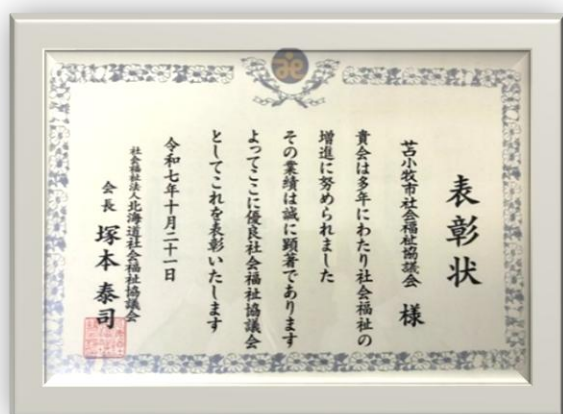 表彰状
苫小牧市社会福祉協議会 様
貴会は多年にわたり社会福祉の
増進に努められました
その業績は誠に顕著であります
よってここに優良社会福祉協議会
としてこれを表彰いたします
令和七年十月二十一日
社会福祉法人北海道社会福祉協議会
会長 塚本泰司